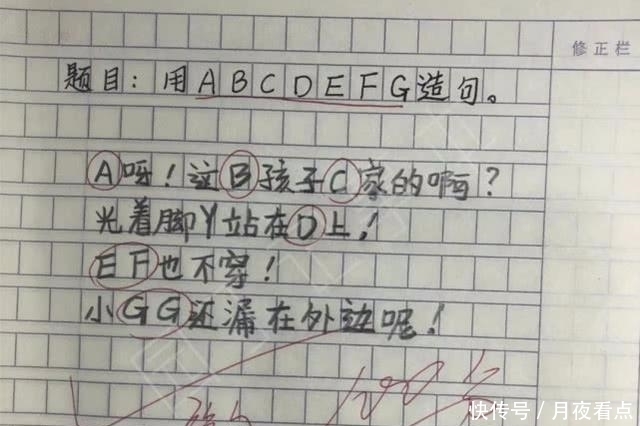 修正栏
题目：用ABCDEFG造句。
A呀！这B孩子C家的啊？
光着脚丫站在D上！
EF也不穿！
小GG还漏在外边呢！
100分
快传号／月夜看点